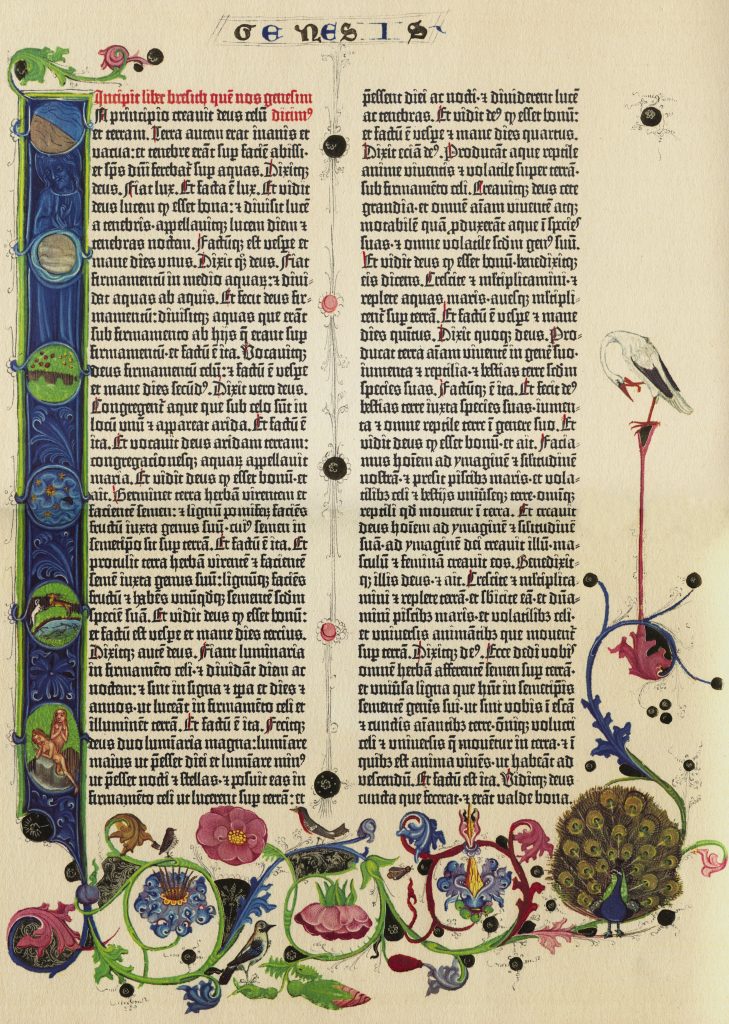 GENESIS
Incipit liber bresith quē nos genesim
In principio creavit deus celū dicim⁹
et terram. Terra autem erat inanis et
vacua: et tenebre erāt sup faciē abissi:
et sp̄s dn̄i ferebat᷑ sup aquas. Dixitq̨
deus. Fiat lux. Et facta ē lux. Et vidit
deus lucem ꝙ esset bona: ⁊ divisit lucē
a tenebris. appellavitq̨ lucem diem ⁊
tenebras noctem. Factūq̨ est vespe et
mane dies unus. Dixit qꝫ deus. Fiat
firmamentū in medio aquaꝝ: ⁊ divi⸗
dat aquas ab aquis. Et fecit deus fir⸗
mamentū: divisitq̨ aquas que erāt
sub firmamento ab hijs q̄ erant sup
firmamentū: et factū ē ita. Vocavitq̨
deus firmamentū celū: ⁊ factū ē vespe
et mane dies secūd⁹. Dixit vero deus.
Congregent᷑ aque que sub celo sūt in
locū unū ⁊ appareat arida. Et factū ē
ita. Et vocavit deus aridam terram:
congregacionesq̨ aquaꝝ appellavit
maria. Et vidit deus ꝙ esset bonū. et
ait. Germinet terra herbā virentem et
facientē semen: ⁊ lignū pomifeꝝ faciēs
fructū iuxta genus suū. cui⁹ semen in
semetipō sit sup terrā. Et factū ē ita. Et
protulit terra herbā virentē ⁊ facientē
semē iuxta genus suū: lignūq̨ faciēs
fructū ⁊ habēs unūqdq̨ sementē scdm
speciē suā. Et vidit deus ꝙ esset bonū:
et factū est vespe et mane dies tercius.
Dixitq̨ autē deus. Fiant luminaria
in firmamēto celi. ⁊ dividāt diem ac
noctem: ⁊ sint in signa ⁊ tp̄a et dies ⁊
annos. ut luceāt in firmamēto celi et
illuminēt terrā. Et factū ē ita. Fecitq̨
deus duo lumīaria magna: lumīare
maius ut p̄esset diei et lumīare min⁹
ut p̄esset nocti ⁊ stellas. ⁊ posuit eas in
firmamēto celi ut lucerent sup terrā: et
p̄essent diei ac nocti. ⁊ dividerent lucē
ac tenebras. Et vidit de⁹ ꝙ esset bonū:
et factū ē vespe ⁊ mane dies quartus.
Dixit eciā de⁹. Producāt aque reptile
anime viventis ⁊ volatile super terrā.
sub firmamēto celi. Creavitq̨ deus cete
grandia. et omnē aīam viventē atq̨
motabilē quā pduxerāt aque ī species
suas. ⁊ omne volatile scdm gen⁹ suū.
Et vidit deus ꝙ esset bonū. benedixitq̨
eis dicens. Crescite ⁊ mltiplicamini. ⁊
replete aquas maris. avesq̨ mltipli⸗
cent᷑ sup terrā. Et factū ē vespe ⁊ mane
dies quītus. Dixit quoq̨ deus. Pro⸗
ducat terra aīam viventē in genē suo.
iumenta ⁊ reptilia. ⁊ bestias terre scdm
species suas. Factūq̨ ē ita. Et fecit de⁹
bestias terre iuxta species suas. iumen⸗
ta ⁊ omne reptile terre ī genere suo. Et
vidit deus ꝙ esset bonū. et ait. Facia⸗
mus hoīem ad ymaginē ⁊ silitudinē
nostrā. ⁊ presit piscibꝫ maris. et vola⸗
tilibꝫ celi ⁊ bestijs univseq̨ terre. omniq̨
reptili qd movet᷑ ī terra. Et creavit
deus hoīem ad ymaginē ⁊ silitudinē
suā. ad ymaginē dei creavit illū. ma⸗
sculū ⁊ feminā creavit eos. Benedixit⸗
q̨ illis deus. ⁊ ait. Crescite ⁊ mltiplica⸗
mini ⁊ replete terrā. et sbicite eā. et dn̄a⸗
mini piscibꝫ maris. et volatilibꝫ celi.
et universis animātibꝫ que movent᷑
sup terrā. Dixitq̨ de⁹. Ecce dedi vobis
omnē herbā afferentē semen sup terrā.
et univsa ligna que hn̄t in semetip̄is
sementē genīs sui. ut sint vobis ī escā
⁊ cunctis aīantibꝫ terre. oīniq̨ volucri
celi ⁊ universis q̄ movent᷑ in terra. ⁊ ī
quibꝫ est anima vivēs. ut habeāt ad
vescendū. Et factū est ita. Viditq̨ deus
cuncta que fecerat. ⁊ erāt valde bona.